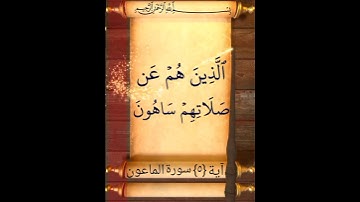 بسم الله الرحمن الرحيم
ٱلَّذِينَ هُمْ عَن
صَلَاتِهِمْ سَاهُونَ
آية {٥} سورة الماعون